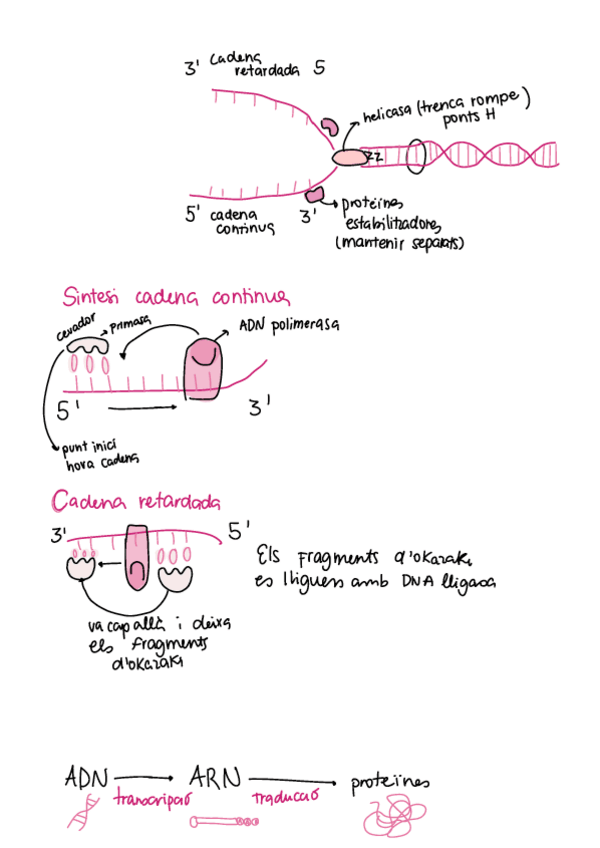 3' cadena
retardada 5
helicasa (trenca rompe)
ponts H
5' cadena
continua 3'
proteïnes
estabilitzadores
(mantenir separats)
Síntesi cadena continua
cevador
primasa
ADN polimerasa
5' 3'
punt inici
nova cadena
Cadena retardada
3' 5'
Els fragments d'okazaki
es lliguen amb DNA lligasa
va cap allà i deixa
els fragments
d'okazaki
ADN ARN proteïnes
transcripció traducció